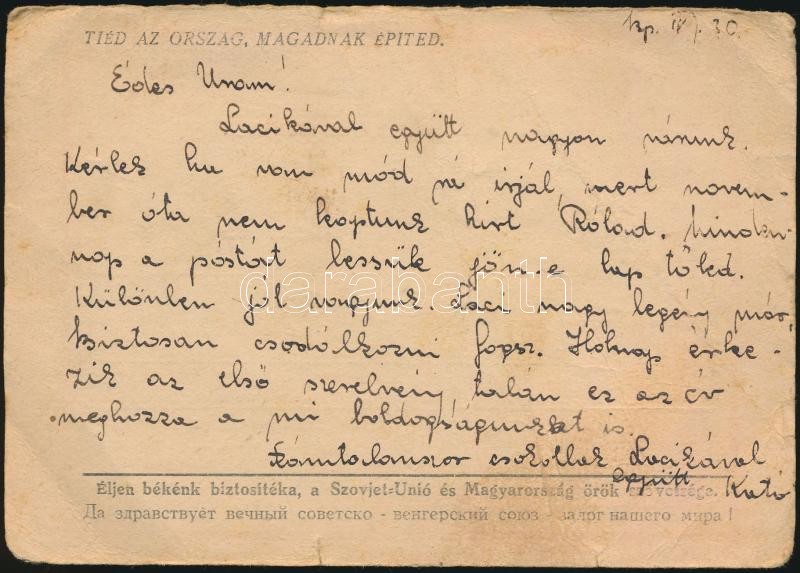 Bp. IV. 30.
TIÉD AZ ORSZÁG, MAGADNAK ÉPITED.
Édes Uram!
Lacikával együtt nagyon várunk.
Kérlek ha van mód rá irjál, mert novem-
ber óta nem kaptunk hírt Rólad. Minden-
nap a póstást lessük jön-e lap tőled.
Különben jól vagyunk. Laci nagy legény már,
biztosan csodálkozni fogsz. Holnap érke-
zik az első szerelvény, talán ez az év
meghozza a mi boldogságunkat is.
Számtalanszor csókollak Lacikával
együtt Kató
Éljen békénk biztosítéka, a Szovjet-Unió és Magyarország örök szövetsége.
Да здравствует вечный советско - венгерский союз - залог нашего мира!
darabanth